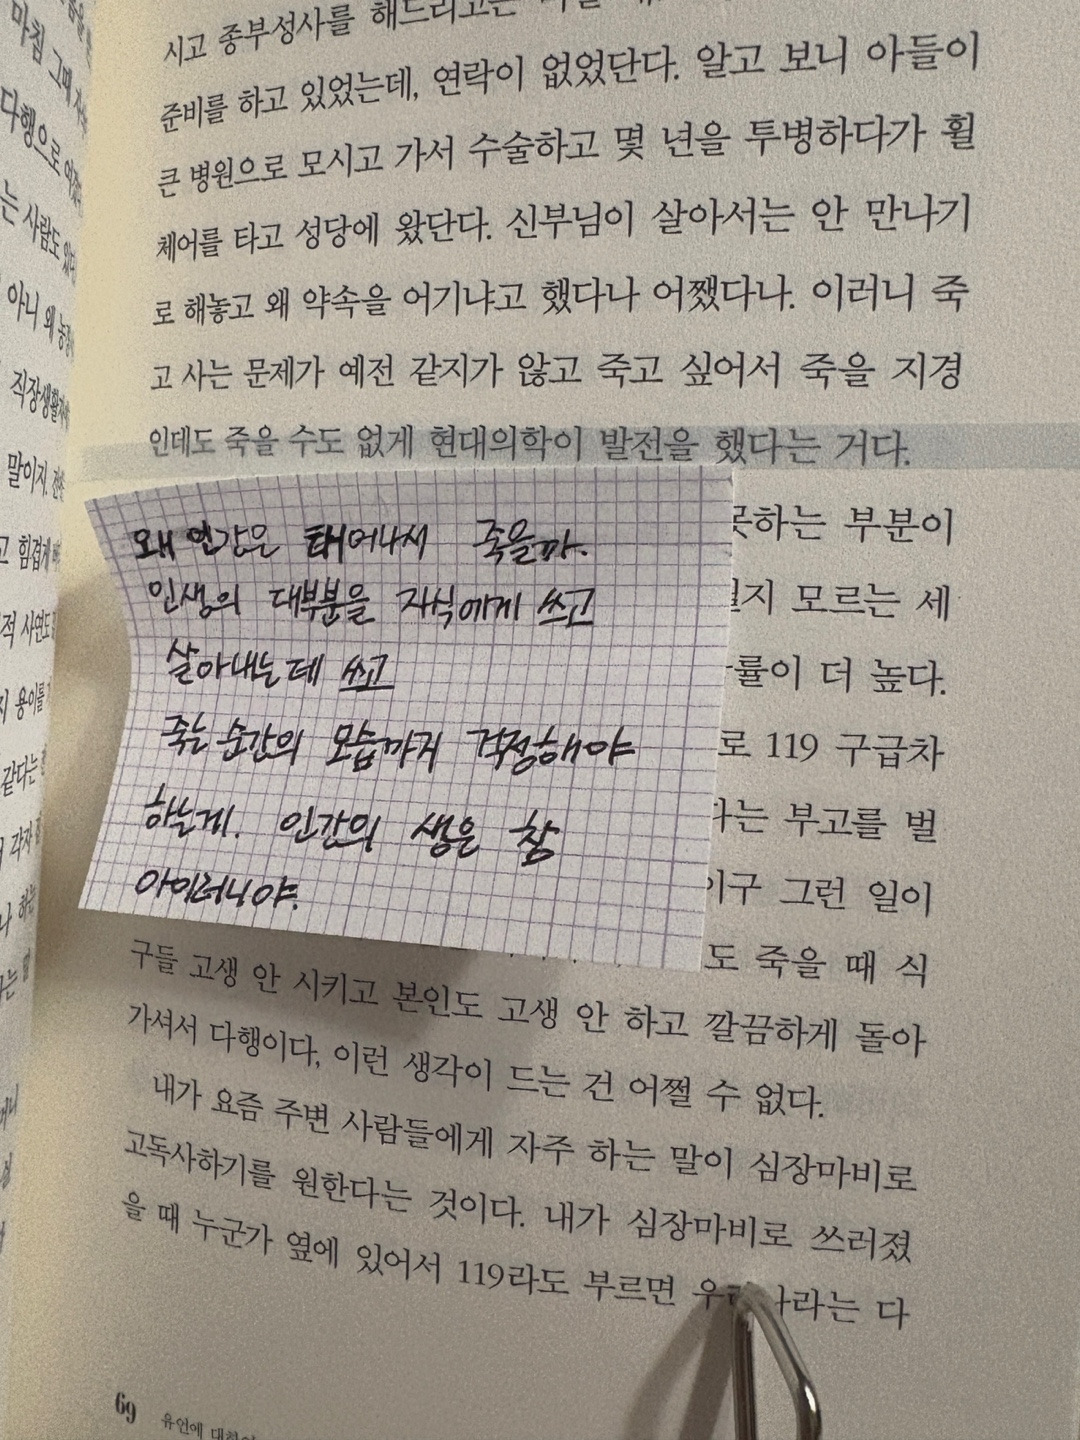 마침 그때
다행으로
는 사람도
아니 왜
직장생활
말이지.
고 힘겹게
적 사연도
지 용이를
같다는
각자
시고 종부성사를 해드리고는
준비를 하고 있었는데, 연락이 없었단다. 알고 보니 아들이
큰 병원으로 모시고 가서 수술하고 몇 년을 투병하다가 휠
체어를 타고 성당에 왔단다. 신부님이 살아서는 안 만나기
로 해놓고 왜 약속을 어기냐고 했다나 어쨌다나. 이러니 죽
고 사는 문제가 예전 같지가 않고 죽고 싶어서 죽을 지경
인데도 죽을 수도 없게 현대의학이 발전을 했다는 거다.
왜 인간은 태어나서 죽을까.
인생의 대부분을 자식에게 쓰고
살아내는데 쓰고
죽는 순간의 모습까지 걱정해야
하는게. 인간의 생은 참
아이러니야.
못하는 부분이
지 모르는 세
률이 더 높다.
로 119 구급차
다는 부고를 벌
이구 그런 일이
도 죽을 때 식
구들 고생 안 시키고 본인도 고생 안 하고 깔끔하게 돌아
가셔서 다행이다, 이런 생각이 드는 건 어쩔 수 없다.
내가 요즘 주변 사람들에게 자주 하는 말이 심장마비로
고독사하기를 원한다는 것이다. 내가 심장마비로 쓰러졌
을 때 누군가 옆에 있어서 119라도 부르면 우리나라는 다
69 유언에